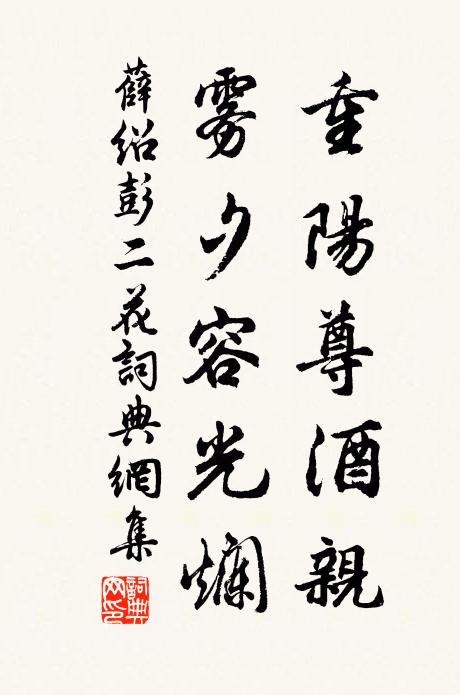 重陽尊酒親
雾夕容光爛
薛紹彭二花詞典網集
詞典
网印